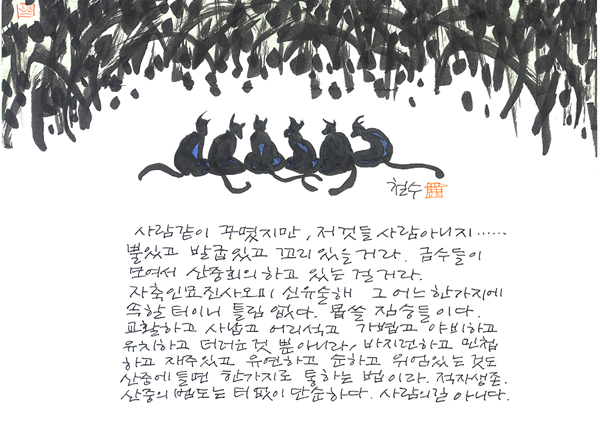 철수
사람같이 꾸몄지만, 저것들 사람아니지……
뿔있고 발굽있고 꼬리 있을거라. 금수들이
모여서 산중회의 하고 있는 걸 거라.
자축인묘진사오미 신유술해 그 어느 한가지에
속할 터이니 틀림 없다. 몹쓸 짐승들이다.
교활하고 사납고 어리석고 가볍고 야비하고
유치하고 더러운것 뿐아니라, 바지런하고 민첩
하고 재주있고 유연하고 순하고 위엄있는것도
산중에 들면 한가지로 통하는 법이라. 적자생존.
산중의 법도는 터없이 단순하다. 사람의길 아니다.